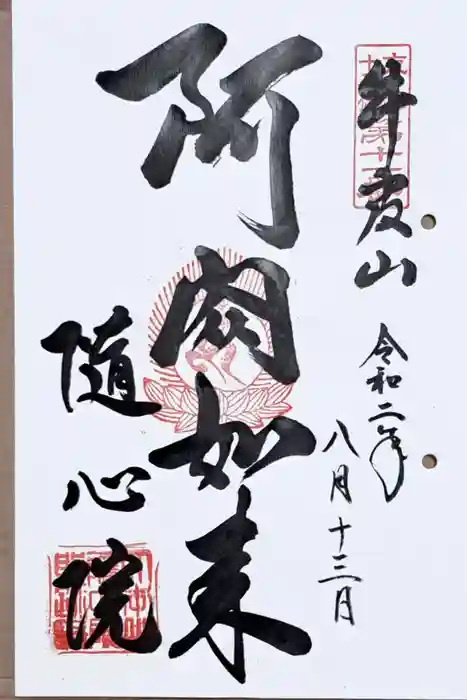 牛皮山
令和二年
八月十三月
阿閦如来
随心院